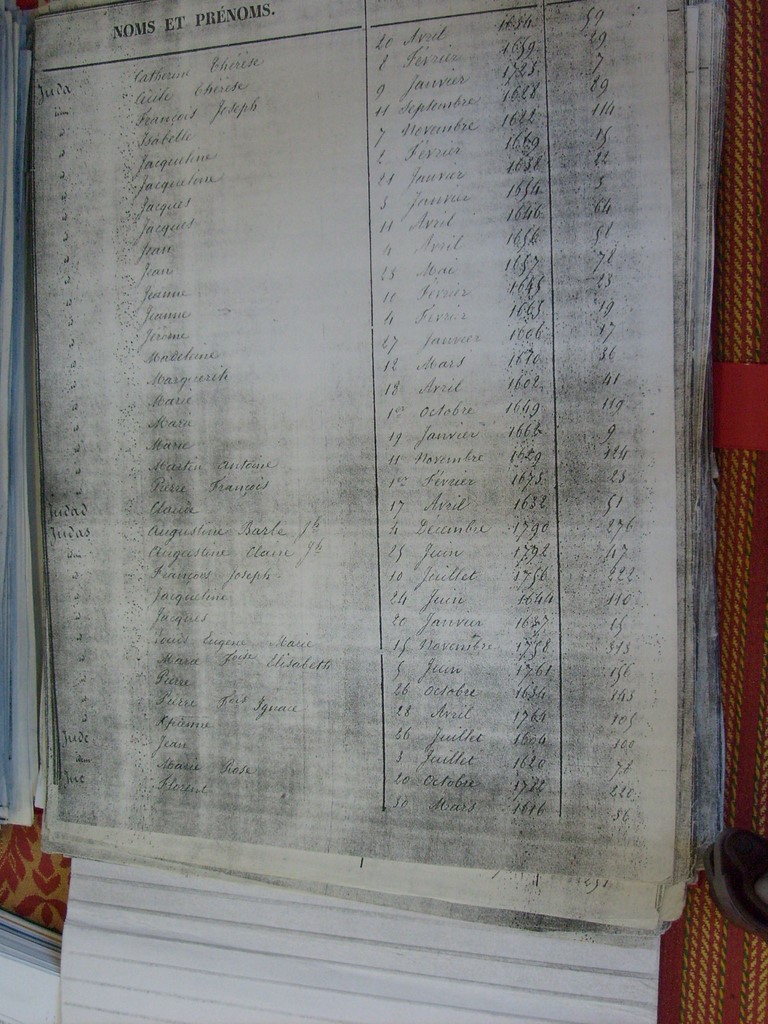 NOMS ET PRÉNOMS.
Juda Catherine Thérèse 20 Avril 1634 59
idem Cécile Thérèse 2 Février 1659 29
id François Joseph 9 Janvier 1723 7
id Isabelle 11 Septembre 1628 29
id Jacqueline 7 Novembre 1622 114
id Jacqueline 2 Février 1669 15
id Jacques 21 Janvier 1638 22
id Jacques 3 Janvier 1654 3
id Jean 11 Avril 1646 64
id Jean 4 Avril 1656 58
id Jeanne 25 Mai 1657 78
id Jeanne 10 Février 1645 23
id Jérôme 4 Février 1665 19
id Madeleine 27 Janvier 1606 17
id Marguerite 12 Mars 1670 36
id Marie 18 Avril 1602 41
id Marie 1er Octobre 1649 119
id Marie 19 Janvier 1662 9
id Martin Antoine 11 Novembre 1629 124
id Pierre François 1er Février 1673 23
Judad Claire 17 Avril 1632 51
Judas Augustine Barbe Jh 4 Décembre 1790 276
idem Augustine Claire Jh 25 Juin 1792 47
id François Joseph 10 Juillet 1756 222
id Jacqueline 24 Juin 1644 110
id Jacques 20 Janvier 1637 15
id Louis Eugène Marie 15 Novembre 1758 313
id Marie foise Elisabeth 5 Juin 1761 156
id Pierre 26 Octobre 1634 143
id Pierre fois Ignace 28 Avril 1764 105
id Etienne 26 Juillet 1604 100
Jude Jean 3 Juillet 1620 77
idem Marie Rose 20 Octobre 1772 220
Juc Florent 30 Mars 1616 36